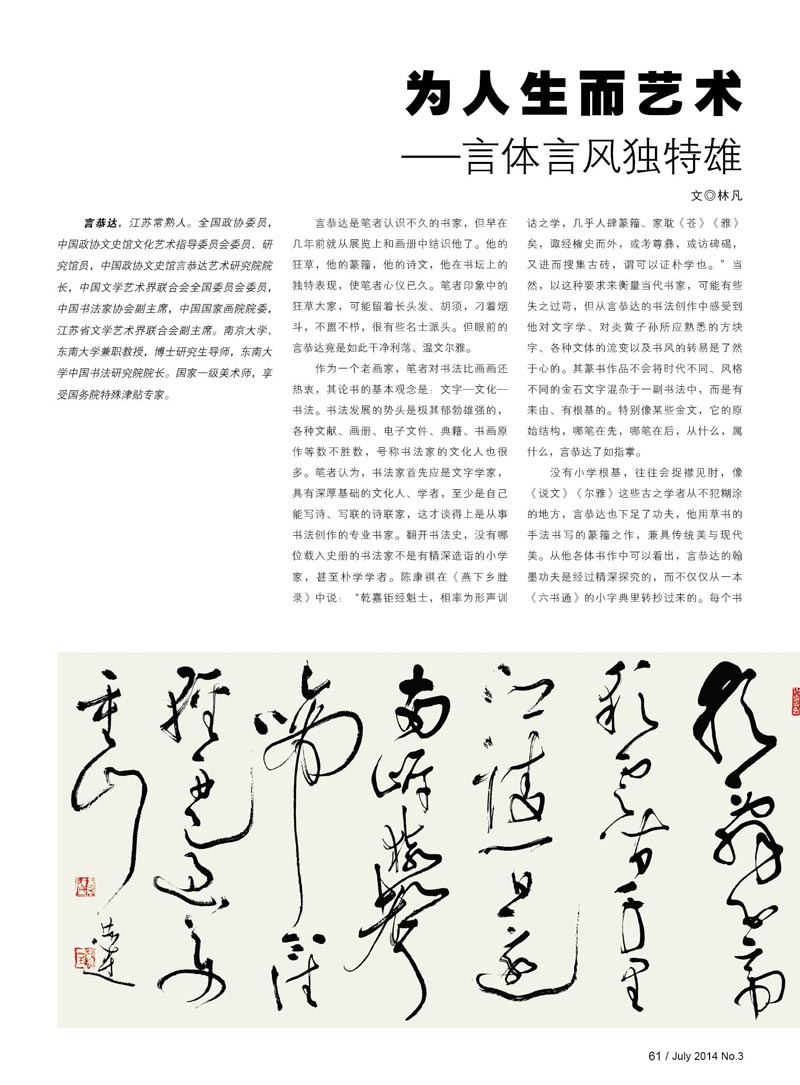 为人生而艺术
——言体言风独特雄
文◎林凡
言恭达，江苏常熟人。全国政协委员，
中国政协文史馆文化艺术指导委员会委员、研
究馆员，中国政协文史馆言恭达艺术研究院院
长，中国文学艺术界联合会全国委员会委员，
中国书法家协会副主席，中国国家画院院委，
江苏省文学艺术界联合会副主席。南京大学、
东南大学兼职教授，博士研究生导师，东南大
学中国书法研究院院长。国家一级美术师，享
受国务院特殊津贴专家。
言恭达是笔者认识不久的书家，但早在
几年前就从展览上和画册中结识他了。他的
狂草，他的篆籀，他的诗文，他在书坛上的
独特表现，使笔者心仪已久。笔者印象中的
狂草大家，可能留着长头发、胡须，刁着烟
斗，不盥不栉，很有些名士派头。但眼前的
言恭达竟是如此干净利落、温文尔雅。
作为一个老画家，笔者对书法比画画还
热衷，其论书的基本观念是：文字—文化—
书法。书法发展的势头是极其郁勃雄强的，
各种文献、画册、电子文件、典籍、书画原
作等数不胜数，号称书法家的文化人也很
多。笔者认为，书法家首先应是文字学家，
具有深厚基础的文化人、学者，至少是自己
能写诗、写联的诗联家，这才谈得上是从事
书法创作的专业书家。翻开书法史，没有哪
位载入史册的书法家不是有精深造诣的小学
家，甚至朴学学者。陈康祺在《燕下乡脞
录》中说：“乾嘉钜经魁士，相率为形声训
诂之学，几乎人肆篆籀、家耽《苍》《雅》
矣，诹经榷史而外，或考尊彝，或访碑碣，
又进而搜集古砖，谓可以证朴学也。”当
然，以这种要求来衡量当代书家，可能有些
失之过苛，但从言恭达的书法创作中感受到
他对文字学、对炎黄子孙所应熟悉的方块
字、各种文体的流变以及书风的转易是了然
于心的。其篆书作品不会将时代不同、风格
不同的金石文字混杂于一副书法中，而是有
来由、有根基的。特别像某些金文，它的原
始结构，哪笔在先，哪笔在后，从什么，属
什么，言恭达了如指掌。
没有小学根基，往往会捉襟见肘，像
《说文》《尔雅》这些古之学者从不犯糊涂
的地方，言恭达也下足了功夫，他用草书的
手法书写的篆籀之作，兼具传统美与现代
美。从他各体书作中可以看出，言恭达的翰
墨功夫是经过精深探究的，而不仅仅从一本
《六书通》的小字典里转抄过来的。每个书
朝辞白帝
彩云间千里
江陵一日还
两岸猿声
啼不住
轻舟已过万
重山
恭达
61 / July 2014 No.3